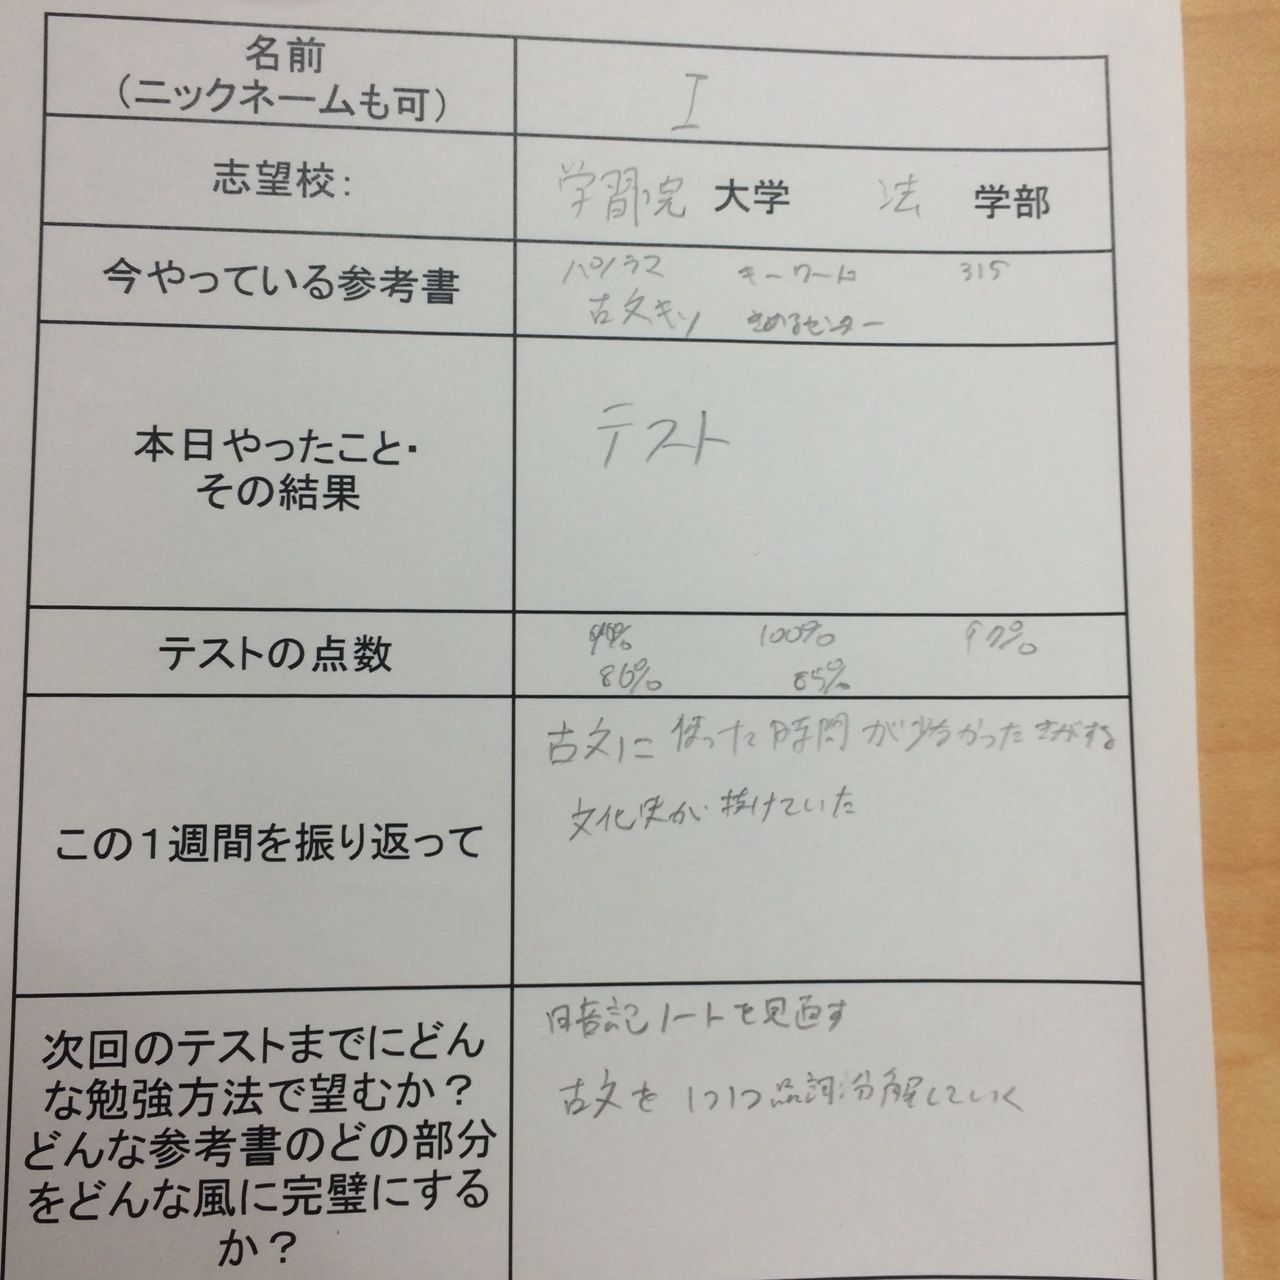 名前
(ニックネームも可)
I
志望校:
学習院 大学 法 学部
今やっている参考書
パノラマ キーワード 315
古文キソ きめるセンター
本日やったこと・
その結果
テスト
テストの点数
100% 97%
86% 85%
この1週間を振り返って
古文に使った時間が少なかった気がする
文化史が抜けていた
次回のテストまでにどん
な勉強方法で望むか?
どんな参考書のどの部分
をどんな風に完璧にする
か?
暗記ノートを見直す
古文を1つ1つ品詞分解していく